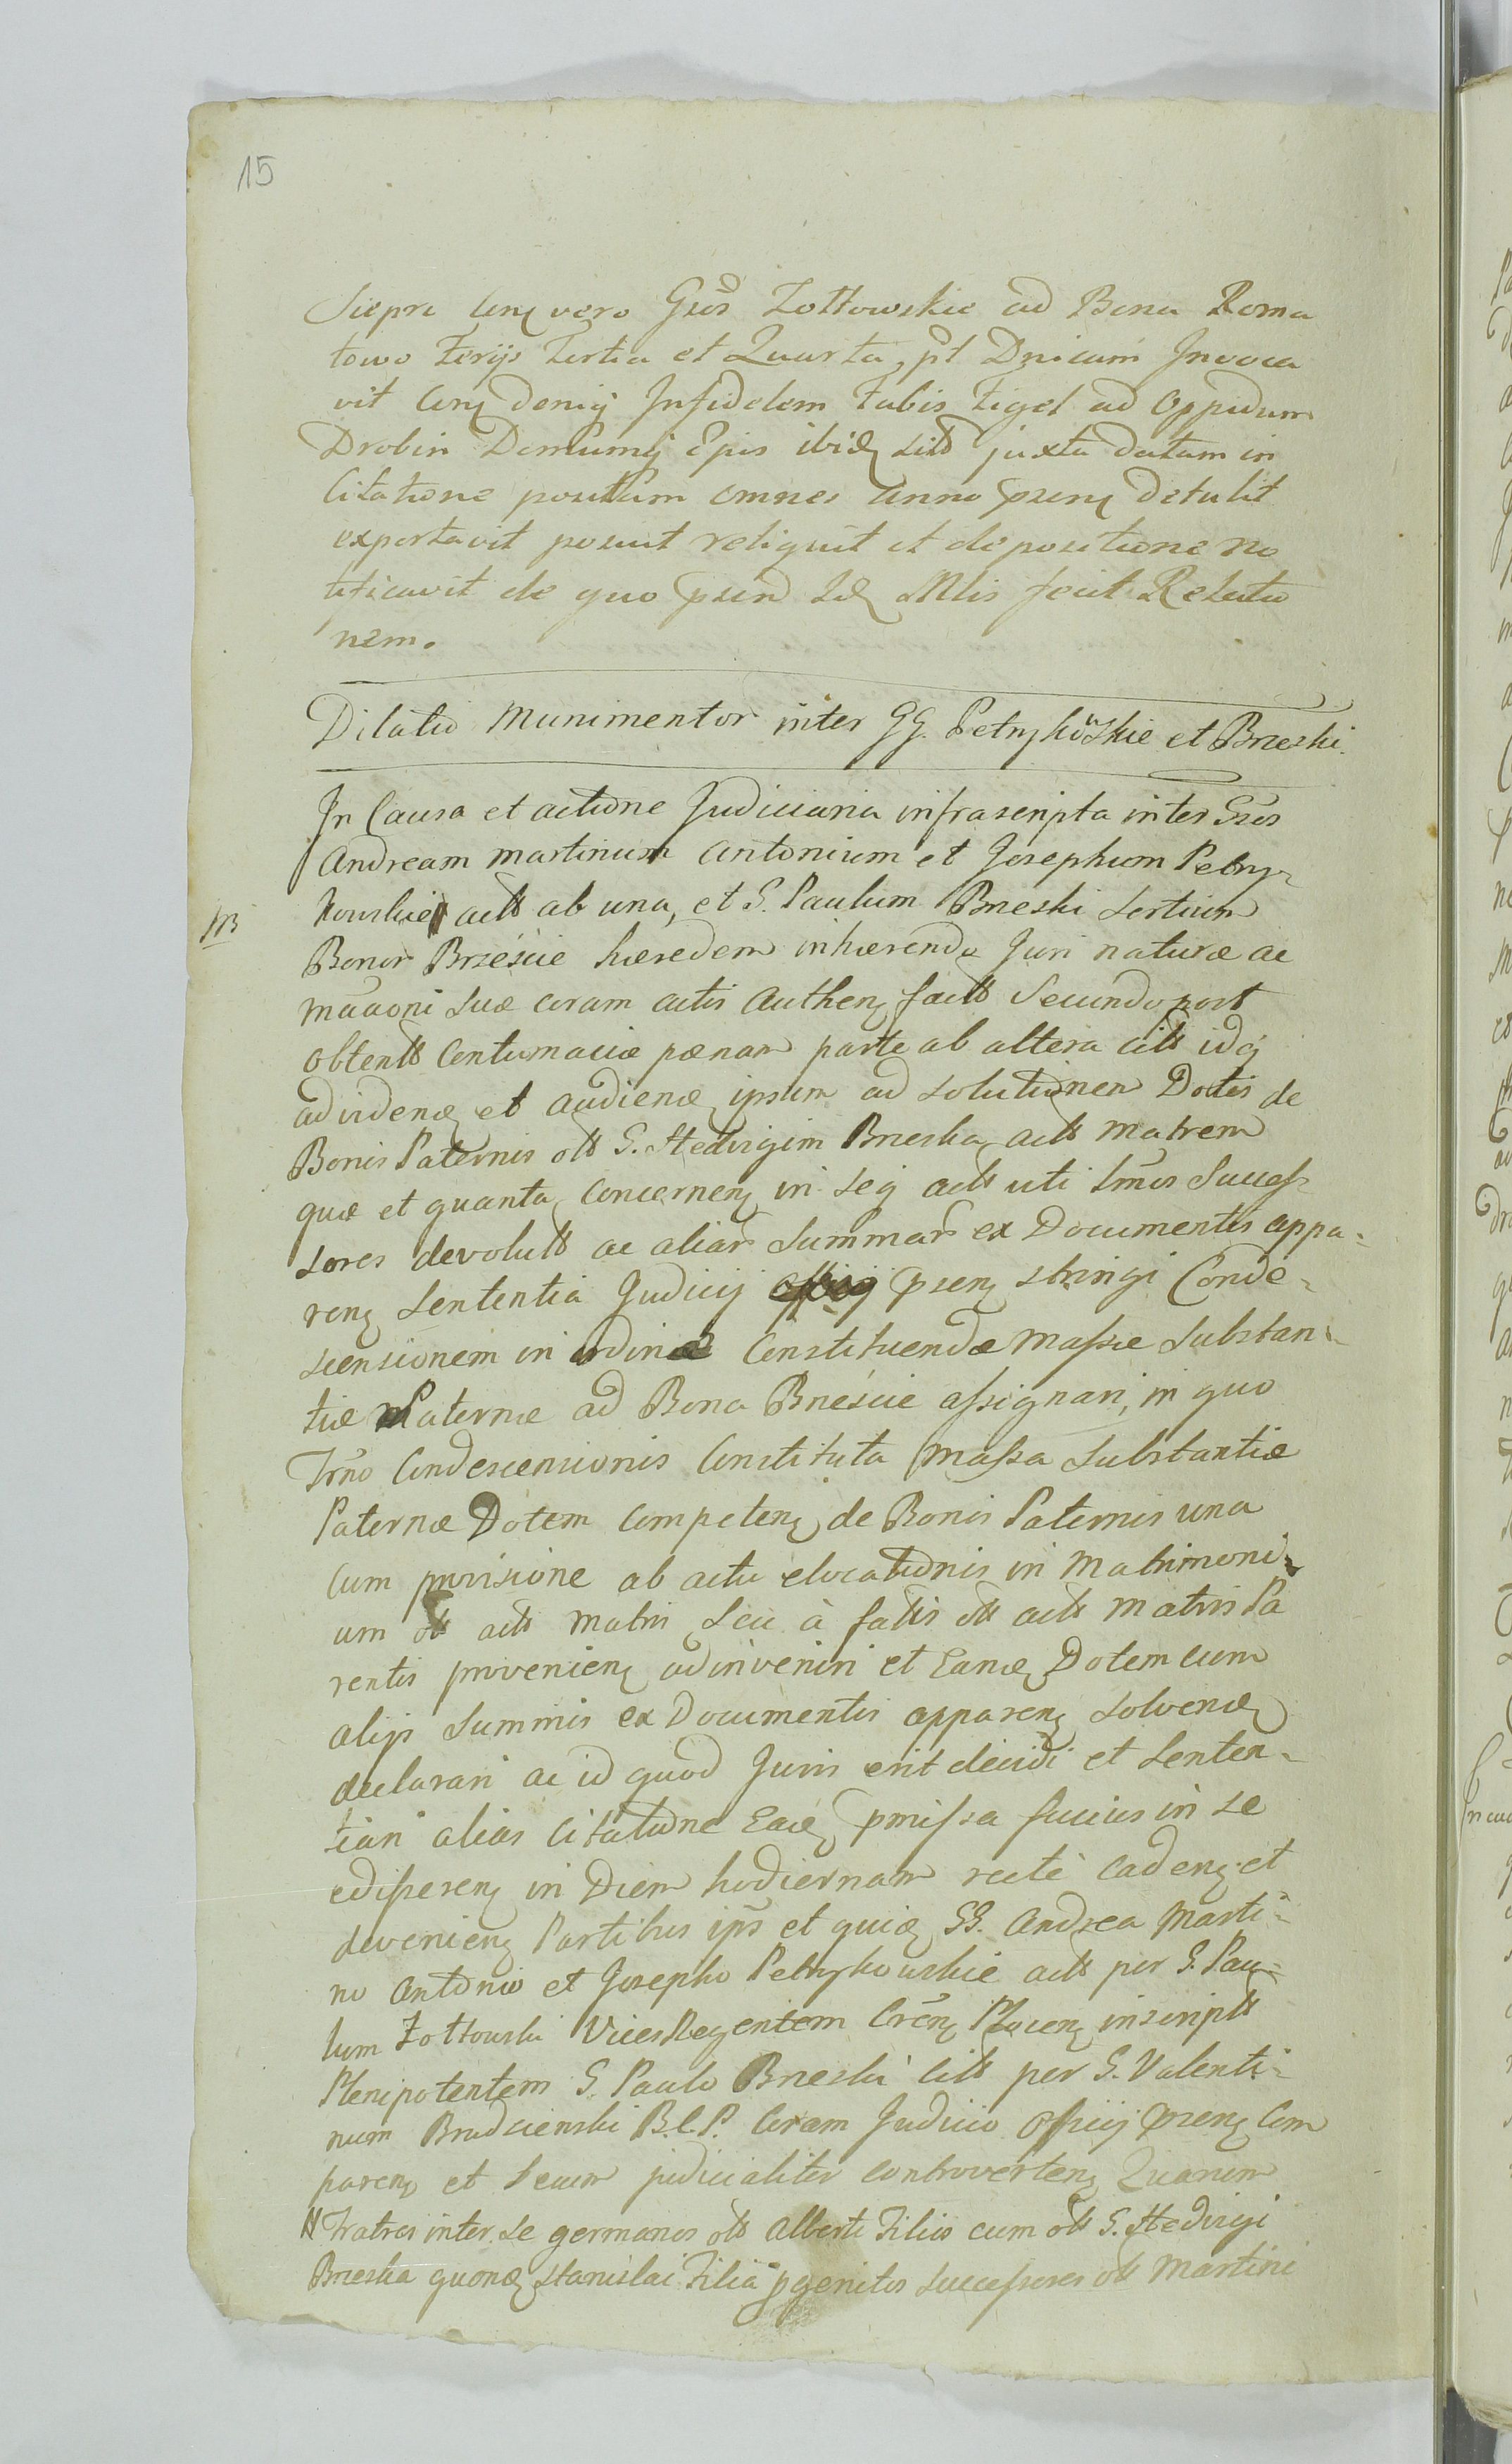 15
Siepra Cenq vero Gsos Zołtowskie ad Bona Roma
towo Ferijs Tertia et Quarta pt Dnicam Invoca
vit Cenq deniq Infidelem Fabis Figel ad Oppidum
Drobin Domumq Epis ibidq sitd juxta datam in
Citatione positam omnes Anno psenq detulit
exportavit posuit reliquit et depositione no
tificavit de quo psend Idq Mlis fecit Relatio
nem.
Dilatio Munimentor inter GG. Petrykowskie et Brzeski.
In Causa et actione Judiciaria infrascripta inter Gsos
Andream Martinum Antonium et Josephum Petry-
kowskie actt ab una, et G. Paulum Brzeski Sortium
Bonor Brzeście hæredem inhærendo Juri naturæ ac
mãaoni suæ coram actis Authenq factt Secundo post
obtentt Contumaciæ pænam parte ab altera citt idq
ad videnq et audienq ipsum ad solutionem Dotis de
Bonis Paternis ott G. Hedvigim Brzeska actt Matrem
quæ et quanta Concernenq in Seq actt uti lmos Succes-
sores devolutt ac aliar Summar ex Documentis appa-
renq Sententia Judicij psenq stringi Conde-
scensionem in ordine Constituendæ Massæ Substan-
tiæ Paternæ ad Bona Brzeście assignari, in quo
Trno Condescensionis Constituta Massa Substantiæ
Paternæ Dotem Competenq de Bonis Paternis una
cum provisione ab actu elocationis in Matrimoni-
um ott actt Matris Seu à fattis ott actt Matris Pa
rentis provenienq adinveniri et Eandq Dotem cum
alijs Summis ex Documentis apparenq solvendq
declarari ac id quod Juris erit decidi et Senten-
tiari alias Citatione Eadq pmissa fusius in se
edisserenq in Diem hodiernam recte cadenq et
devenienq Partibus ipis et quidq GG. Andrea Marti-
no Antonio et Josepho Petrykowskie actt per G. Pau-
lum Zołtowski Vices Regentem Crenq Plocenq inscriptt
Plenipotentem G. Paulo Brzeski citt per G. Valenti-
num Brudzienski B.C.P. Coram Judicio Officij psenq Com
parenq et Secum judicialiter controvertenq Quarum
N Fratres inter se germanos ott Alberti Filios cum ott G. Hedvigi
Brzeska quondq Stanislai Filia pgenitos Successores ott Martini